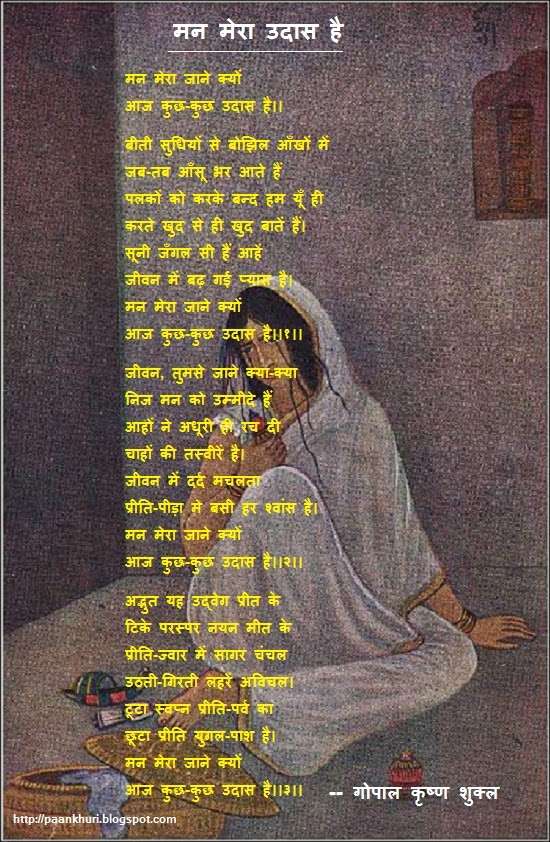 मन मेरा उदास है
मन मेरा जाने क्यों
आज कुछ-कुछ उदास है।।
बीती सुधियों से बोझिल आँखों में
जब-तब आँसू भर आते हैं
पलकों को करके बन्द हम यूँ ही
करते खुद से ही खुद बातें हैं।
सूनी जँगल सी हैं आहें
जीवन में बढ़ गई प्यास है।
मन मेरा जाने क्यों
आज कुछ-कुछ उदास है।।१।।
जीवन, तुमसे जाने क्या-क्या
निज मन को उम्मीदे हैं
आहों ने अधूरी ही रच दी
चाहों की तस्वीरें है।
जीवन में दर्द मचलता
प्रीति-पीड़ा मे बसी हर श्वांस है।
मन मेरा जाने क्यों
आज कुछ-कुछ उदास है।।२।।
अद्भुत यह उद्‌वेग प्रीत के
टिके परस्पर नयन मीत के
प्रीति-ज्वार में सागर चंचल
उठती-गिरती लहरें अविचल।
टूटा स्वप्न प्रीति-पर्व का
छूटा प्रीति युगल-पाश है।
मन मेरा जाने क्यों
आज कुछ-कुछ उदास है।।३।।
-- गोपाल कृष्ण शुक्ल
http://paankhuri.blogspot.com